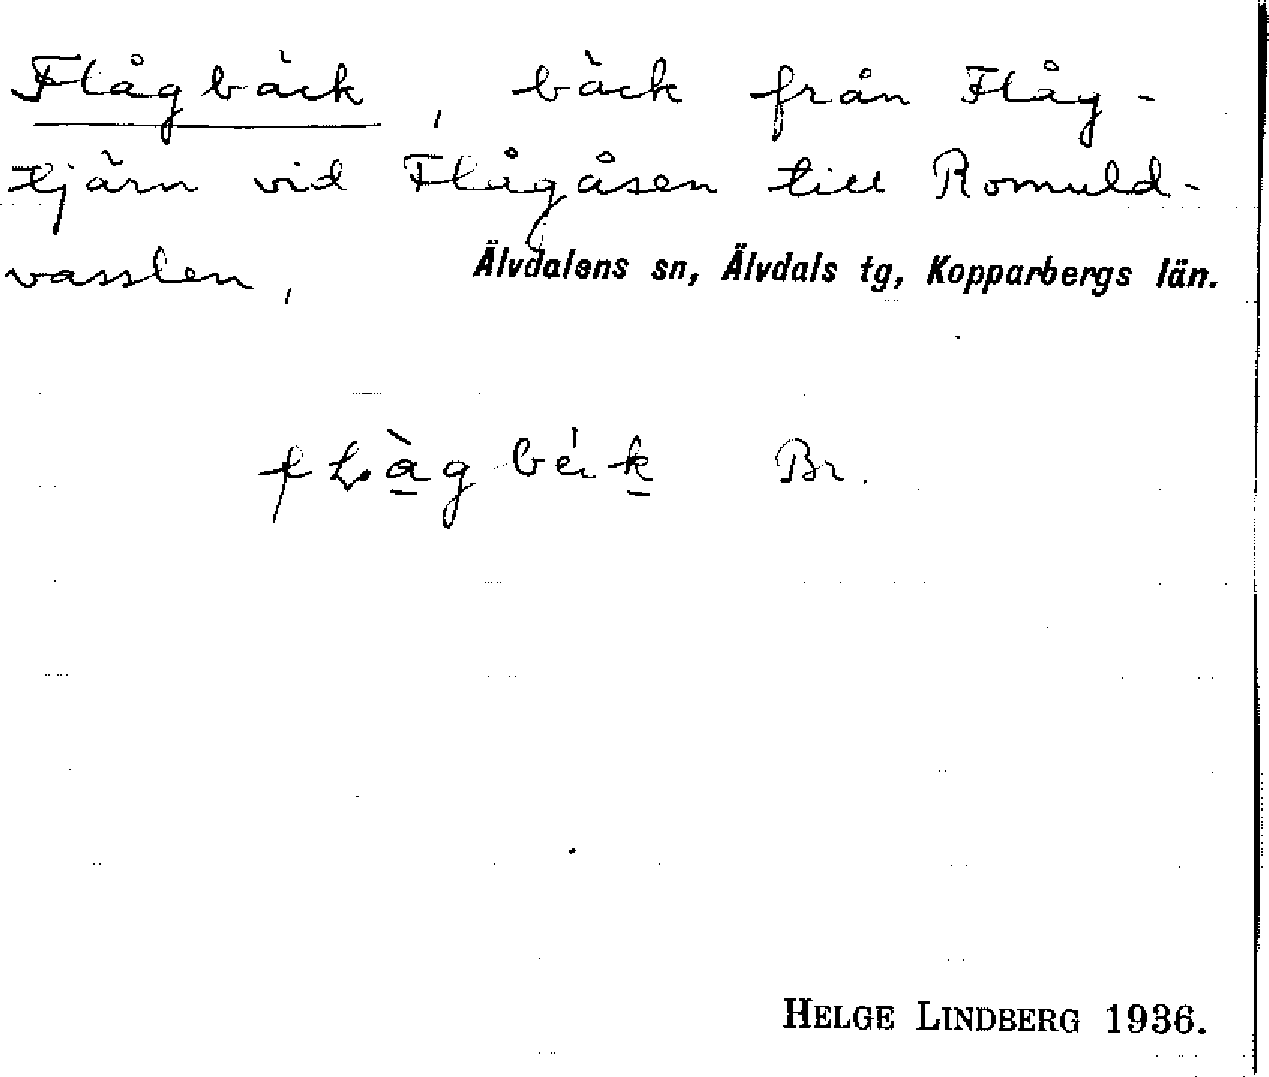 Flågbäck, bäck från Flåg-
tjärn vid Flågåsen till Romuld-
vasslen,
Älvdalens sn, Älvdals tg, Kopparbergs län.
Br.
HELGE LINDBERG 1936.